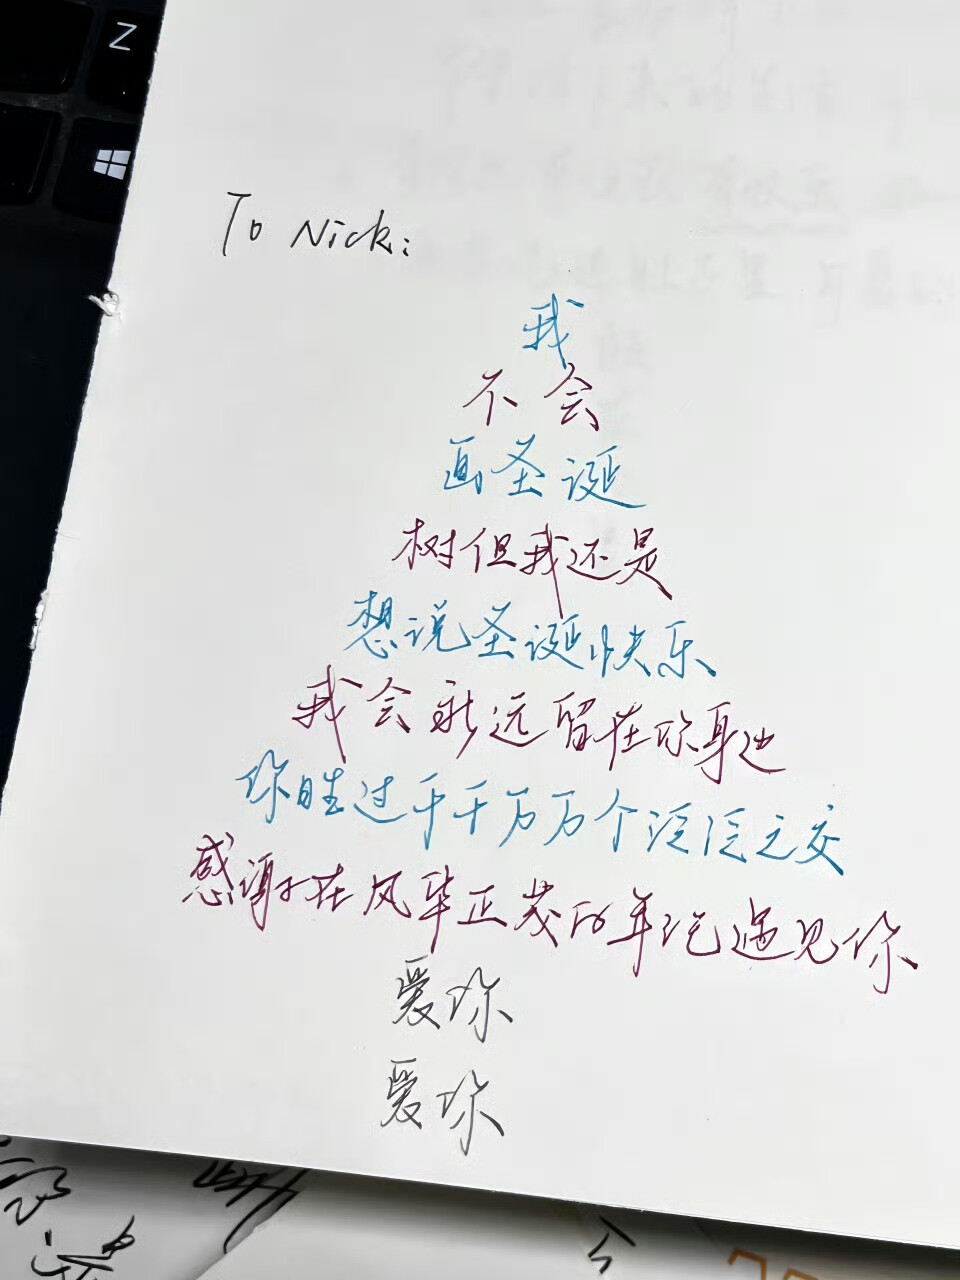 Z
To Nick:
我
不会
画圣诞
树但我还是
想说圣诞快乐
我会永远留在你身边
你胜过千千万万个泛泛之交
感谢在风华正茂的年纪遇见你
爱你
爱你